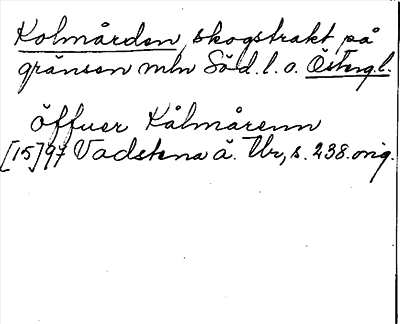 Kolmården, skogstrakt på
gränsen mln Söd.l. o. Österg.l.
öffuer Kålmårenn
[15]97 Vadstena ä. Tbr, s. 238. orig.